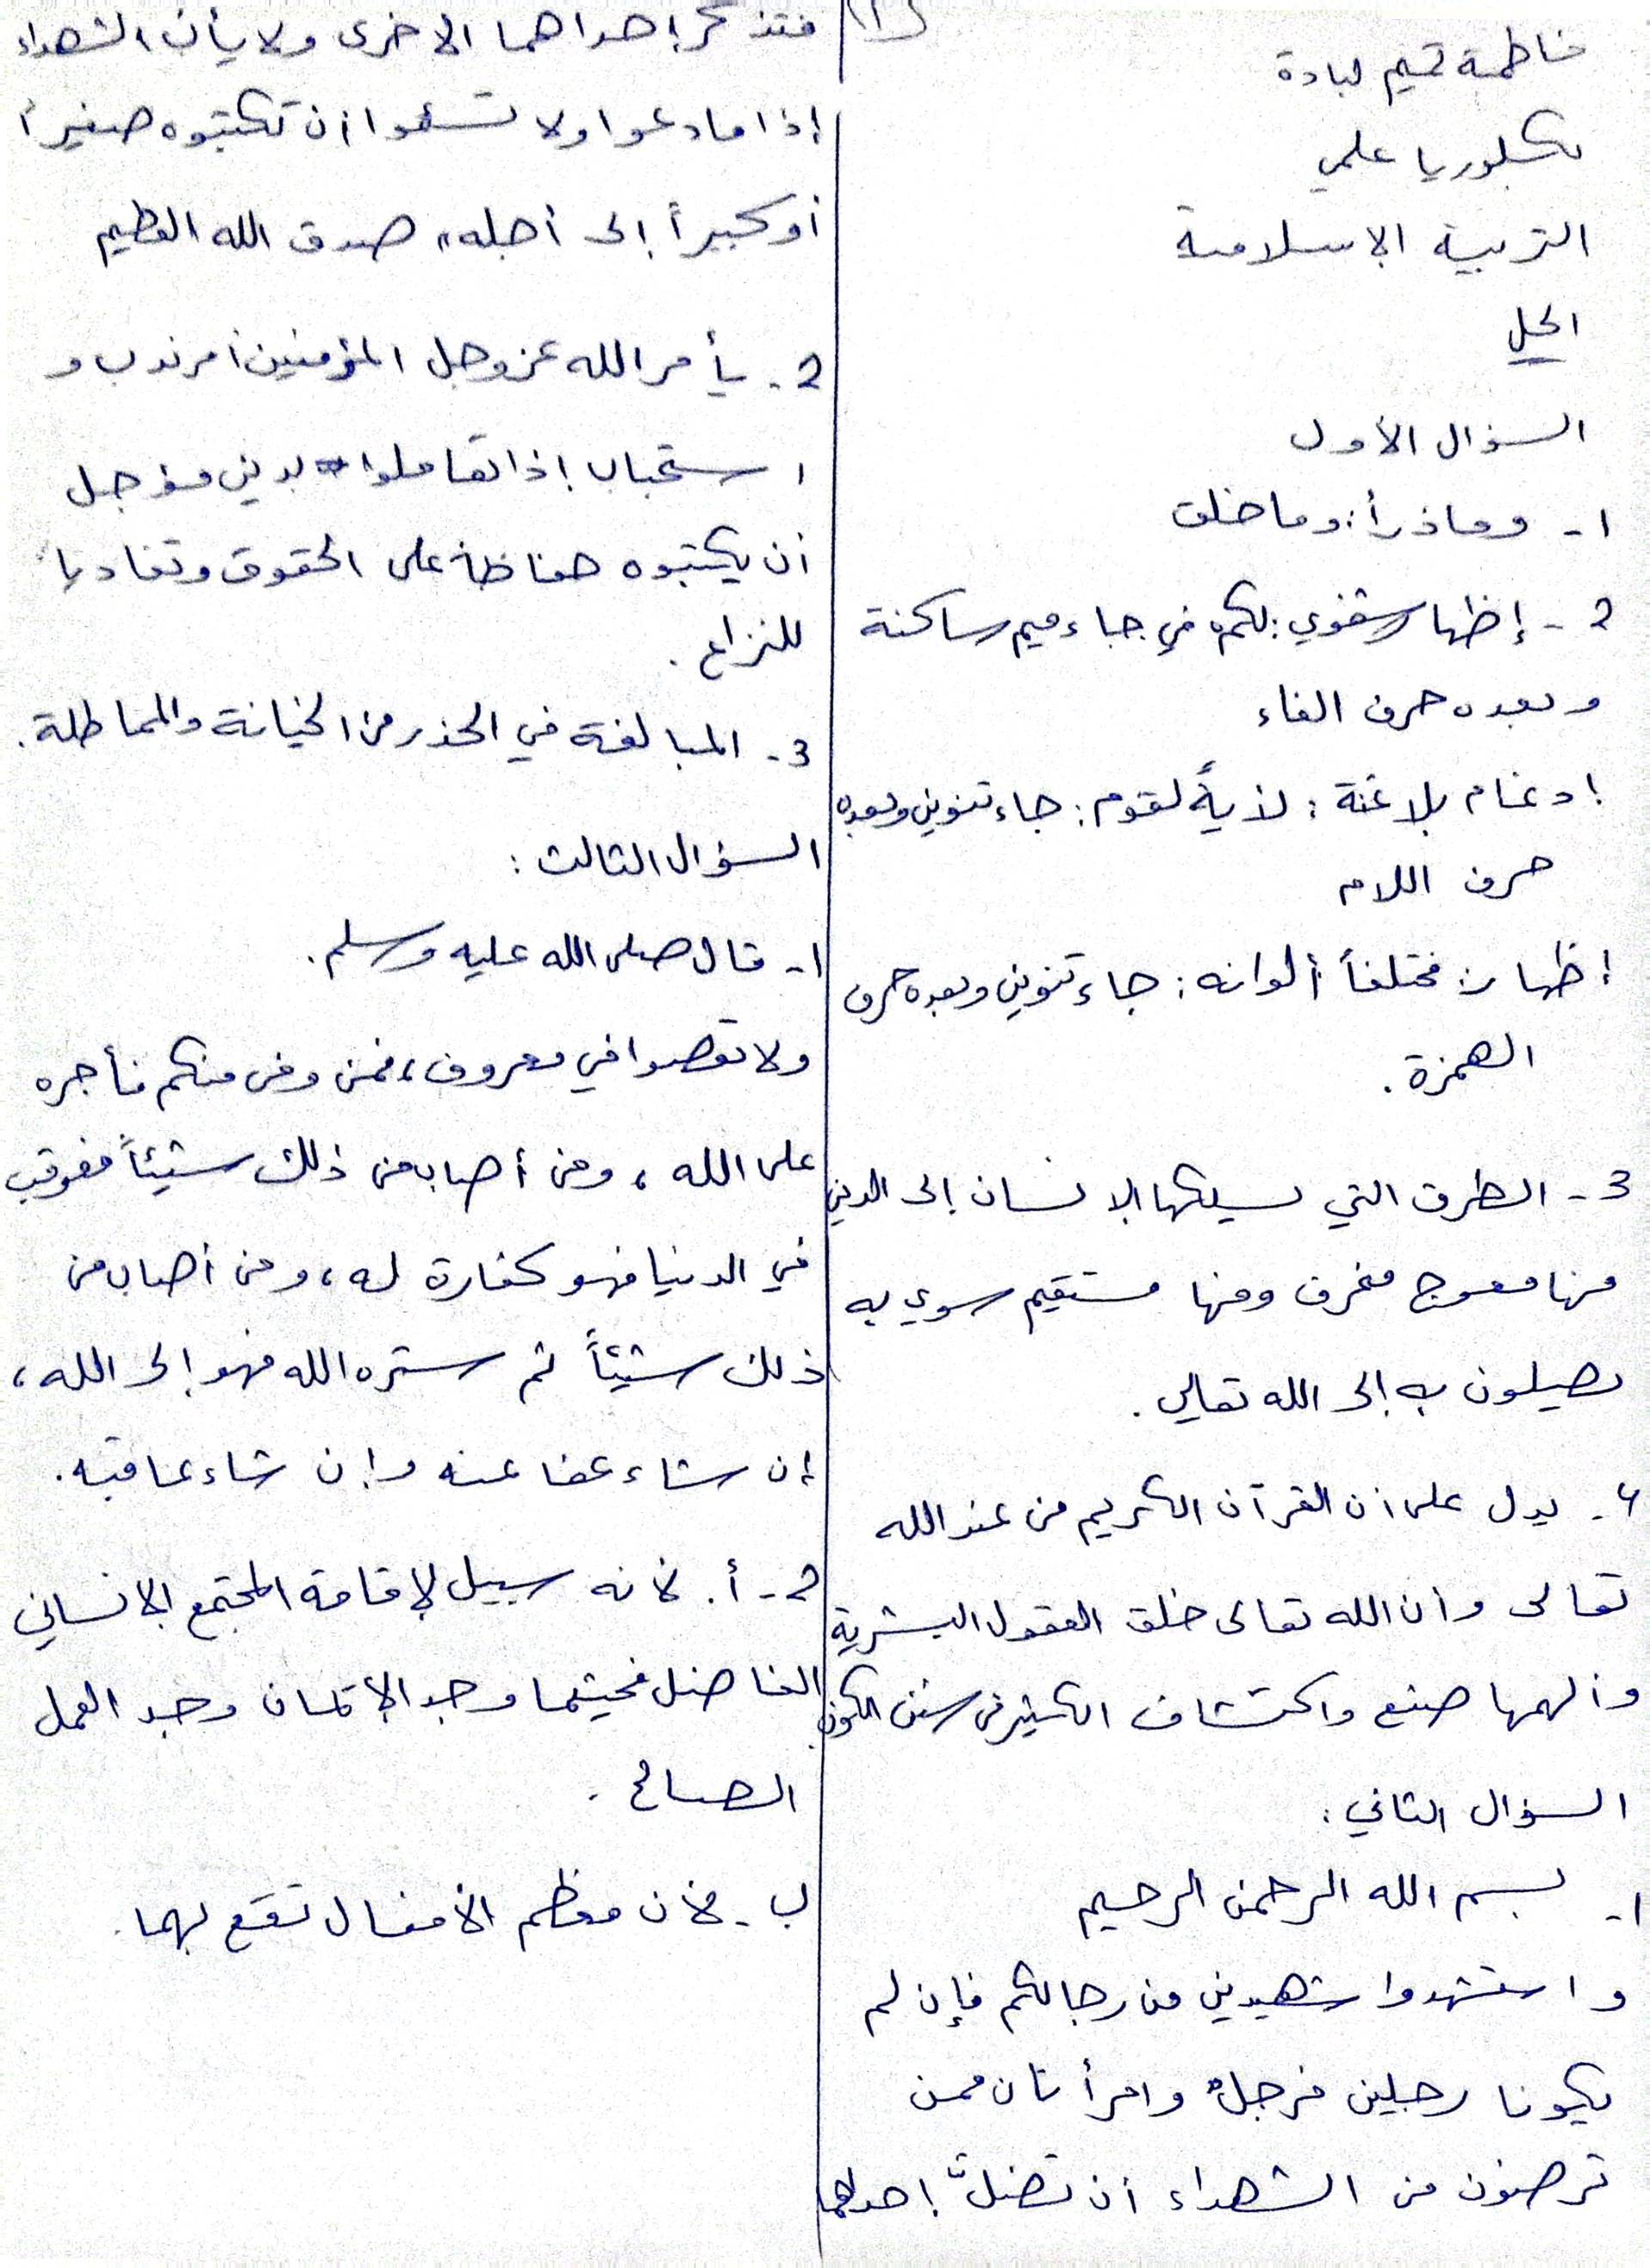 فاطمة تميم لبادة
بكلوريا علمي
التربية الإسلامية
الحل
السؤال الأول
1- وما ذرأ: وما خلق
2- إظهار شفوي: لكم في جاء ميم ساكنة
وبعده حرف الفاء
إدغام بلا غنة: لأيةً لقوم: جاء تنوين وبعده
حرف اللام
إظهار: مختلفاً ألوانه: جاء تنوين وبعده حرف
الهمزة.
3- الطرق التي يسلكها الإنسان إلى الدين
منها معوج منحرف ومنها مستقيم سوي به
يصلون به إلى الله تعالى.
4- يدل على أن القرآن الكريم من عند الله
تعالى وأن الله تعالى خلق العقول البشرية
وألهمها صنع واكتشاف الكثير من سنن الكون.
السؤال الثاني:
1- بسم الله الرحمن الرحيم
واستشهدوا شهيدين من رجالكم فإن لم
يكونا رجلين فرجلٌ وامرأتان ممن
ترضون من الشهداء أن تضلَّ إحداهما
(1)
فتذكر إحداهما الأخرى ولا يأب الشهداء
إذا ما دعوا ولا تسئموا أن تكتبوه صغيراً
أو كبيراً إلى أجله" صدق الله العظيم
2- يأمر الله عز وجل المؤمنين أمر ندب و
استحباب إذا تعاملوا بدين مؤجل
أن يكتبوه حفاظاً على الحقوق وتفادياً
للنزاع.
3- المبالغة في الحذر من الخيانة والمماطلة.
السؤال الثالث:
1- قال صلى الله عليه وسلم.
ولا تعصوا في معروف، فمن وفى منكم فأجره
على الله، ومن أصاب من ذلك شيئاً فعوقب
في الدنيا فهو كفارة له، ومن أصاب من
ذلك شيئاً ثم ستره الله فهو إلى الله،
إن شاء عفا عنه وإن شاء عاقبه.
2- أ. لأنه سبيل لإقامة المجتمع الإنساني
الفاضل فحيثما وجد الإيمان وجد العمل
الصالح.
ب- لأن معظم الأفعال تقع بهما.